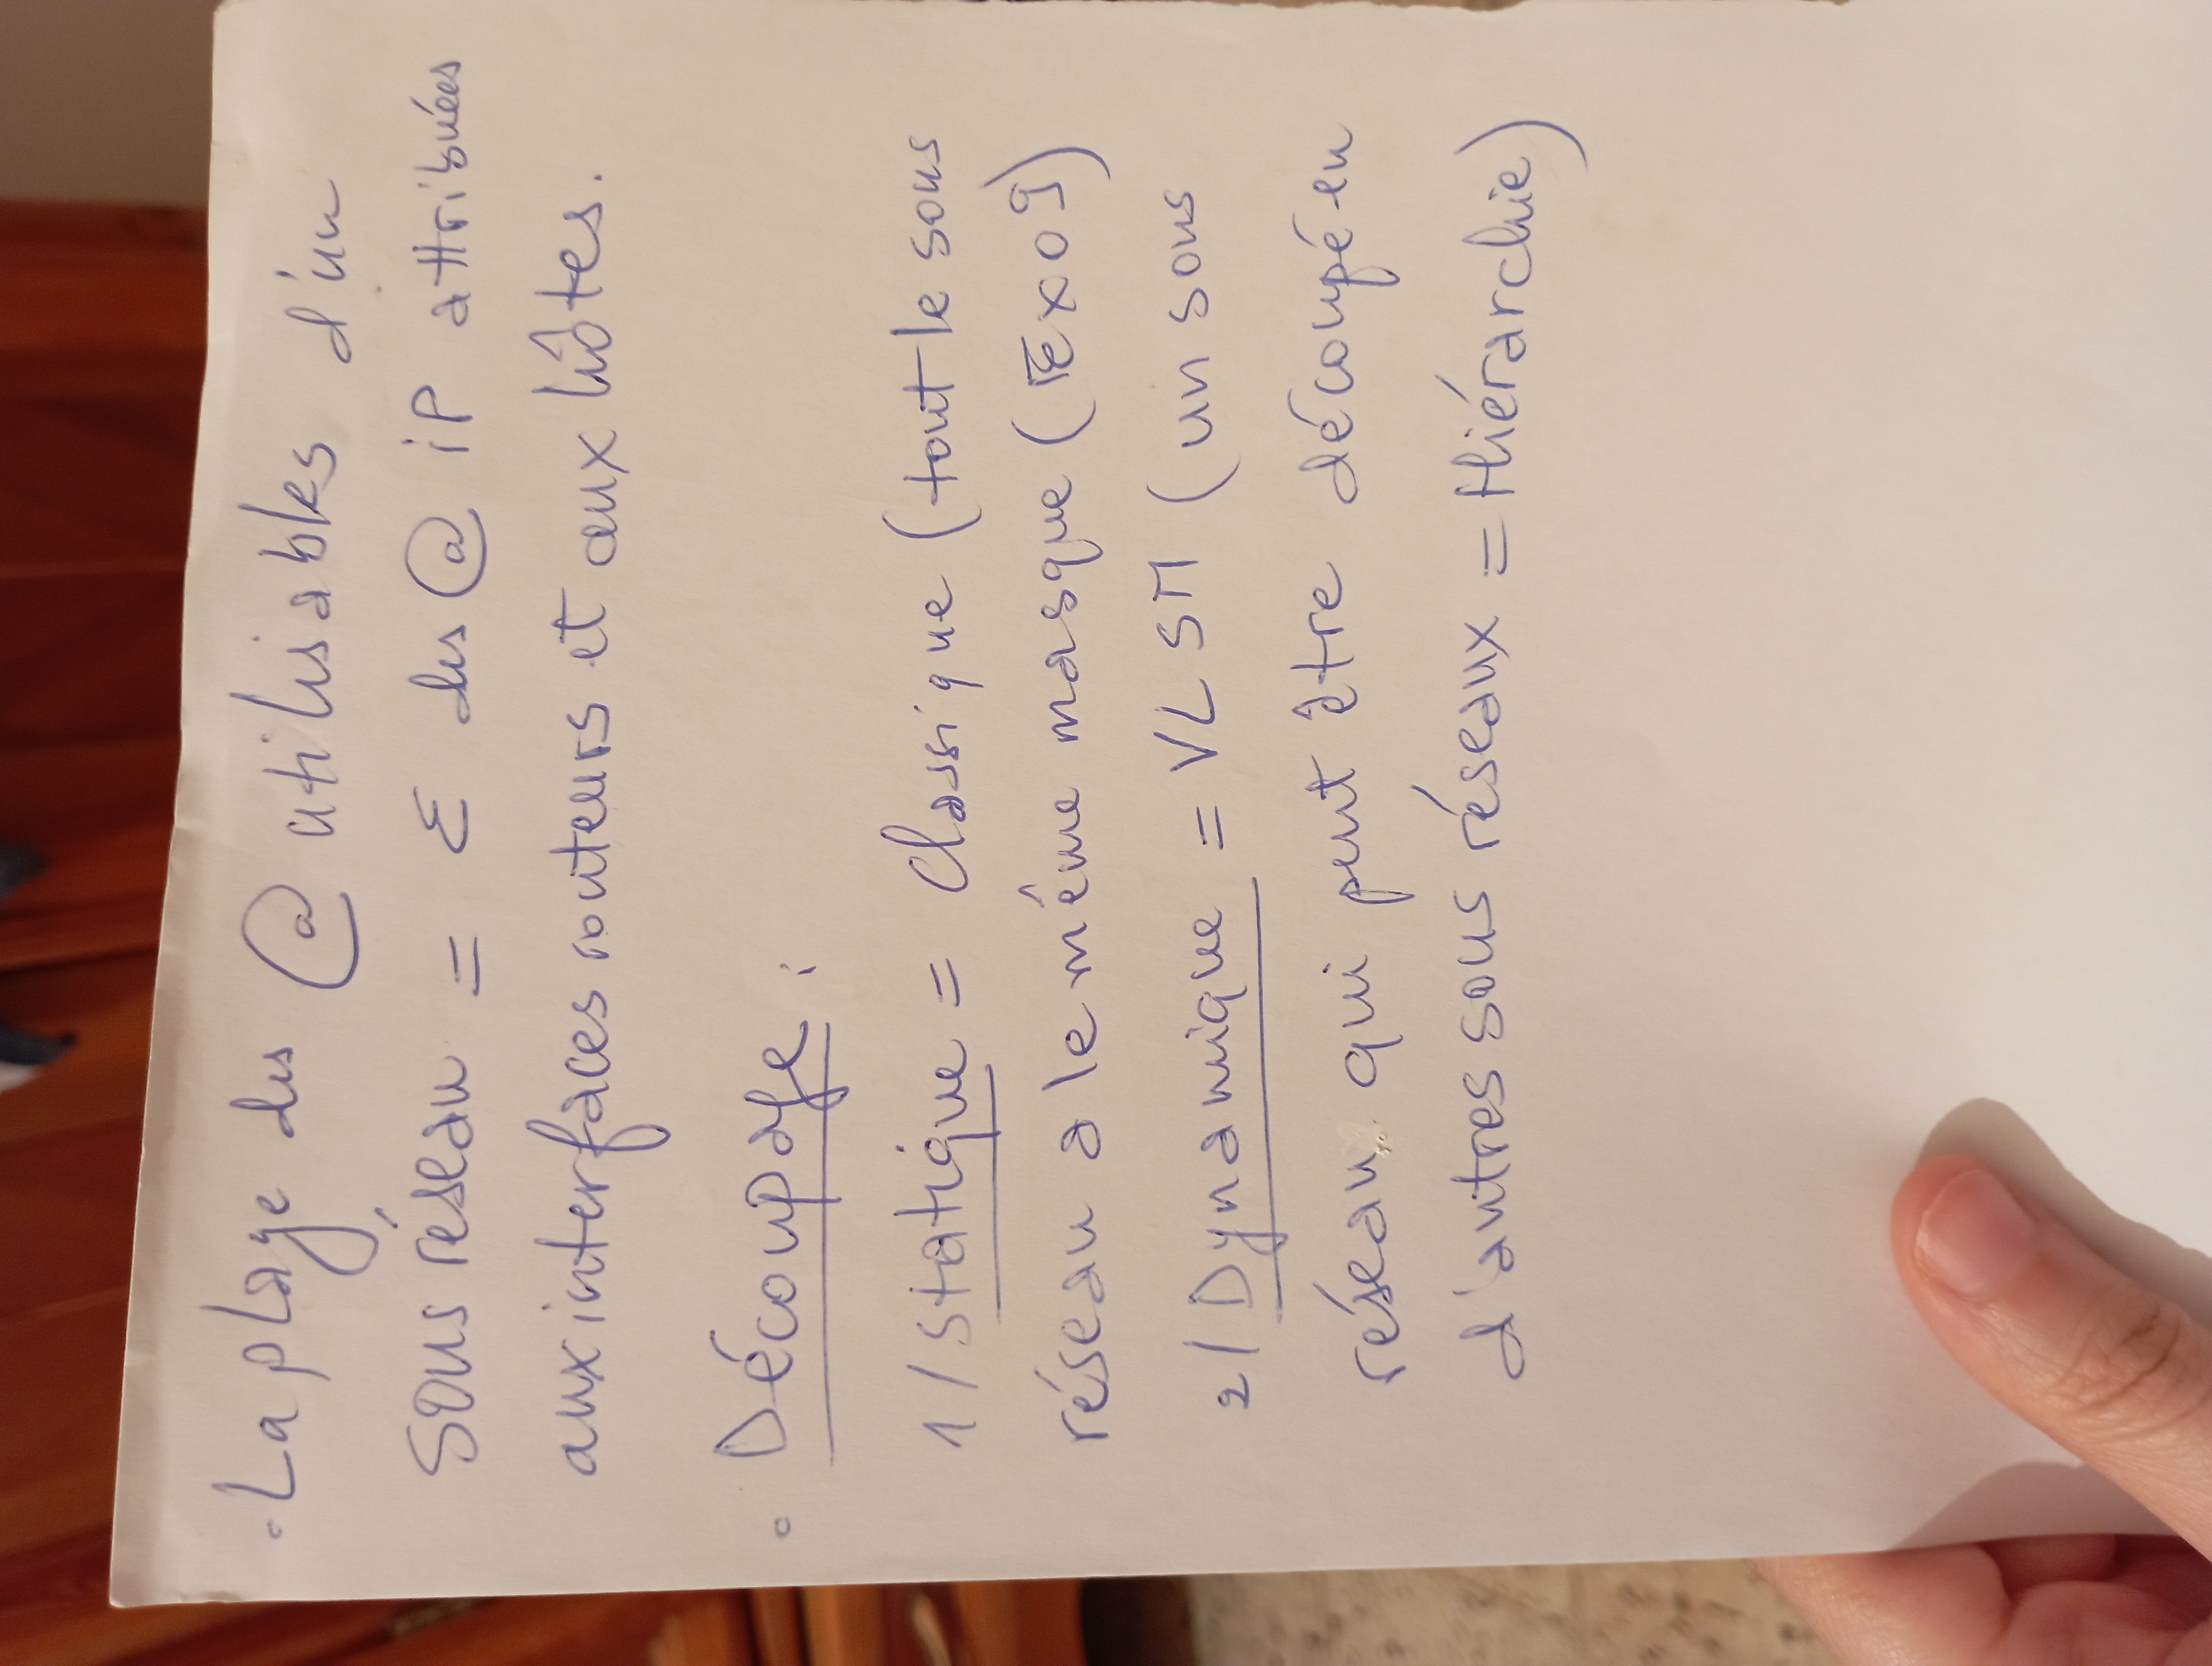 . La plage des @ utilisables d'un
sous réseau = Ɛ des @ iP attribuées
aux interfaces routeurs et aux hôtes.
. Découpage :
1/ Statique = Classique (tout le sous
réseau a le même masque (Exo 9)
2/ Dynamique = VLSM (un sous
réseau qui peut être découpé en
d'autres sous réseaux = Hiérarchie)